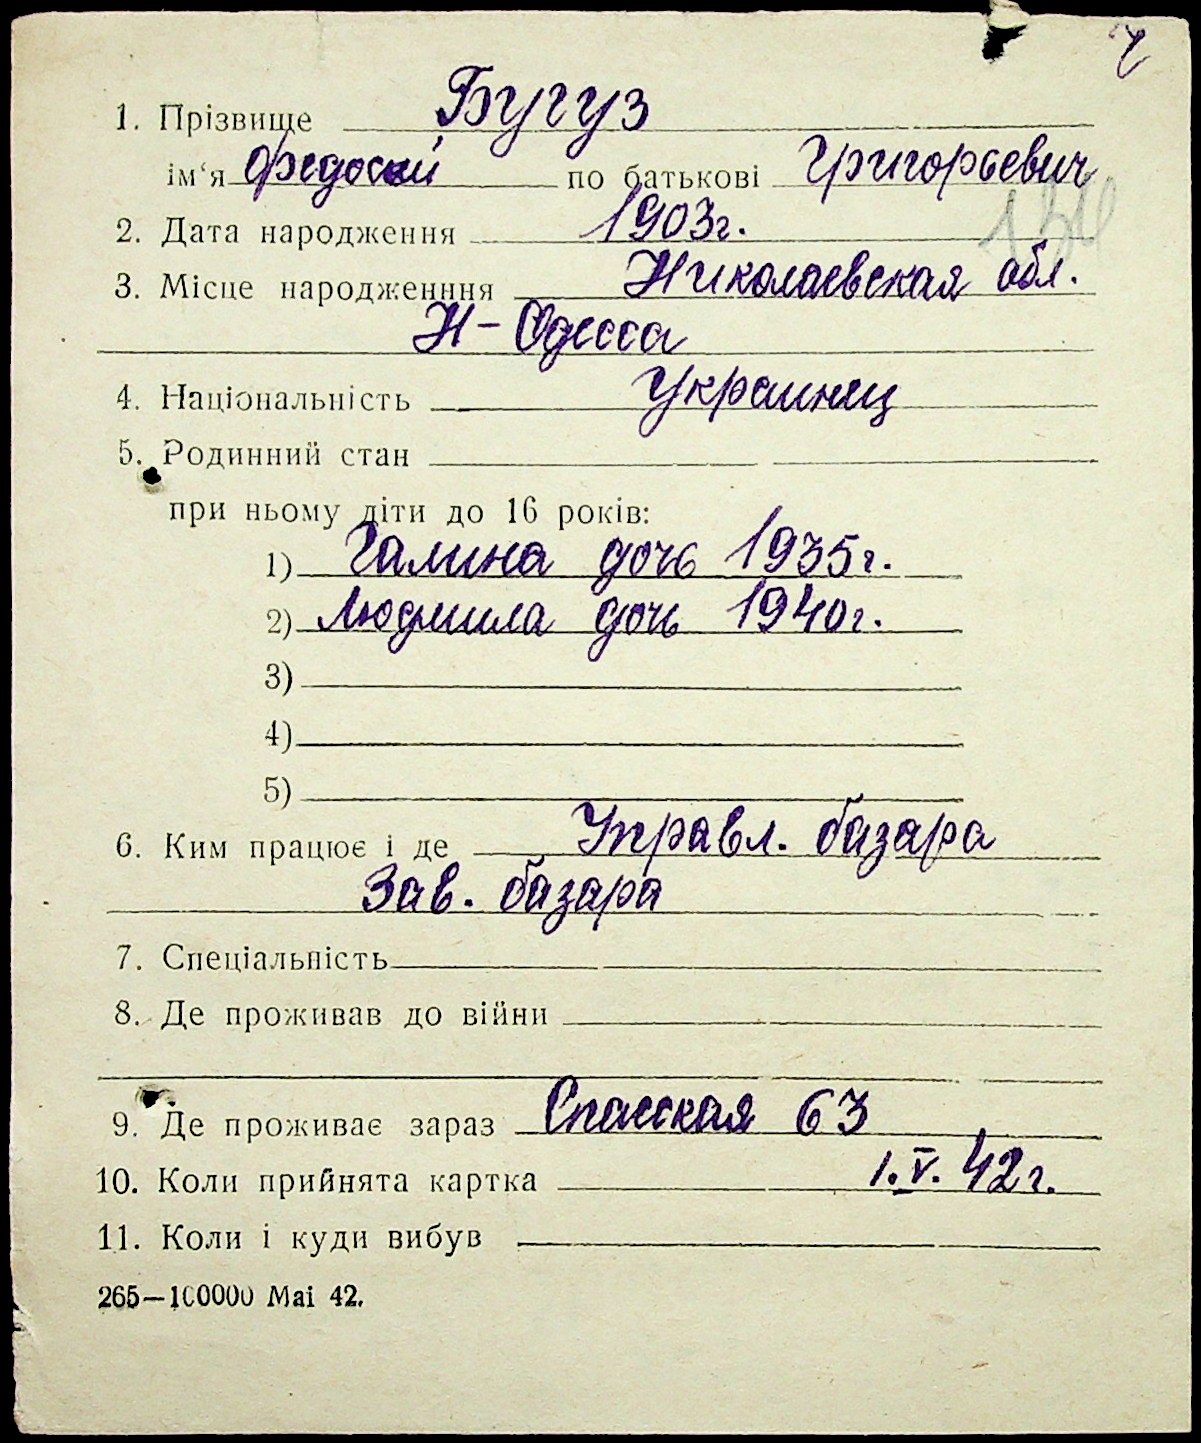 1. Прізвище Бугуз
ім‘я Федосий по батькові Григорьевич
2. Дата народження 1903г.
3. Місце народженння Николаевская обл.
Н-Одесса
4. Національність Украинец
5. Родинний стан
при ньому діти до 16 років:
1) Галина дочь 1935г.
2) Людмила дочь 1940г.
3)
4)
5)
6. Ким працює і де Управл. базара
Зав. базара
7. Спеціальність
8. Де проживав до війни
9. Де проживає зараз Спасская 63
10. Коли прийнята картка 1.V.42г.
11. Коли і куди вибув
265—100000 Mai 42.